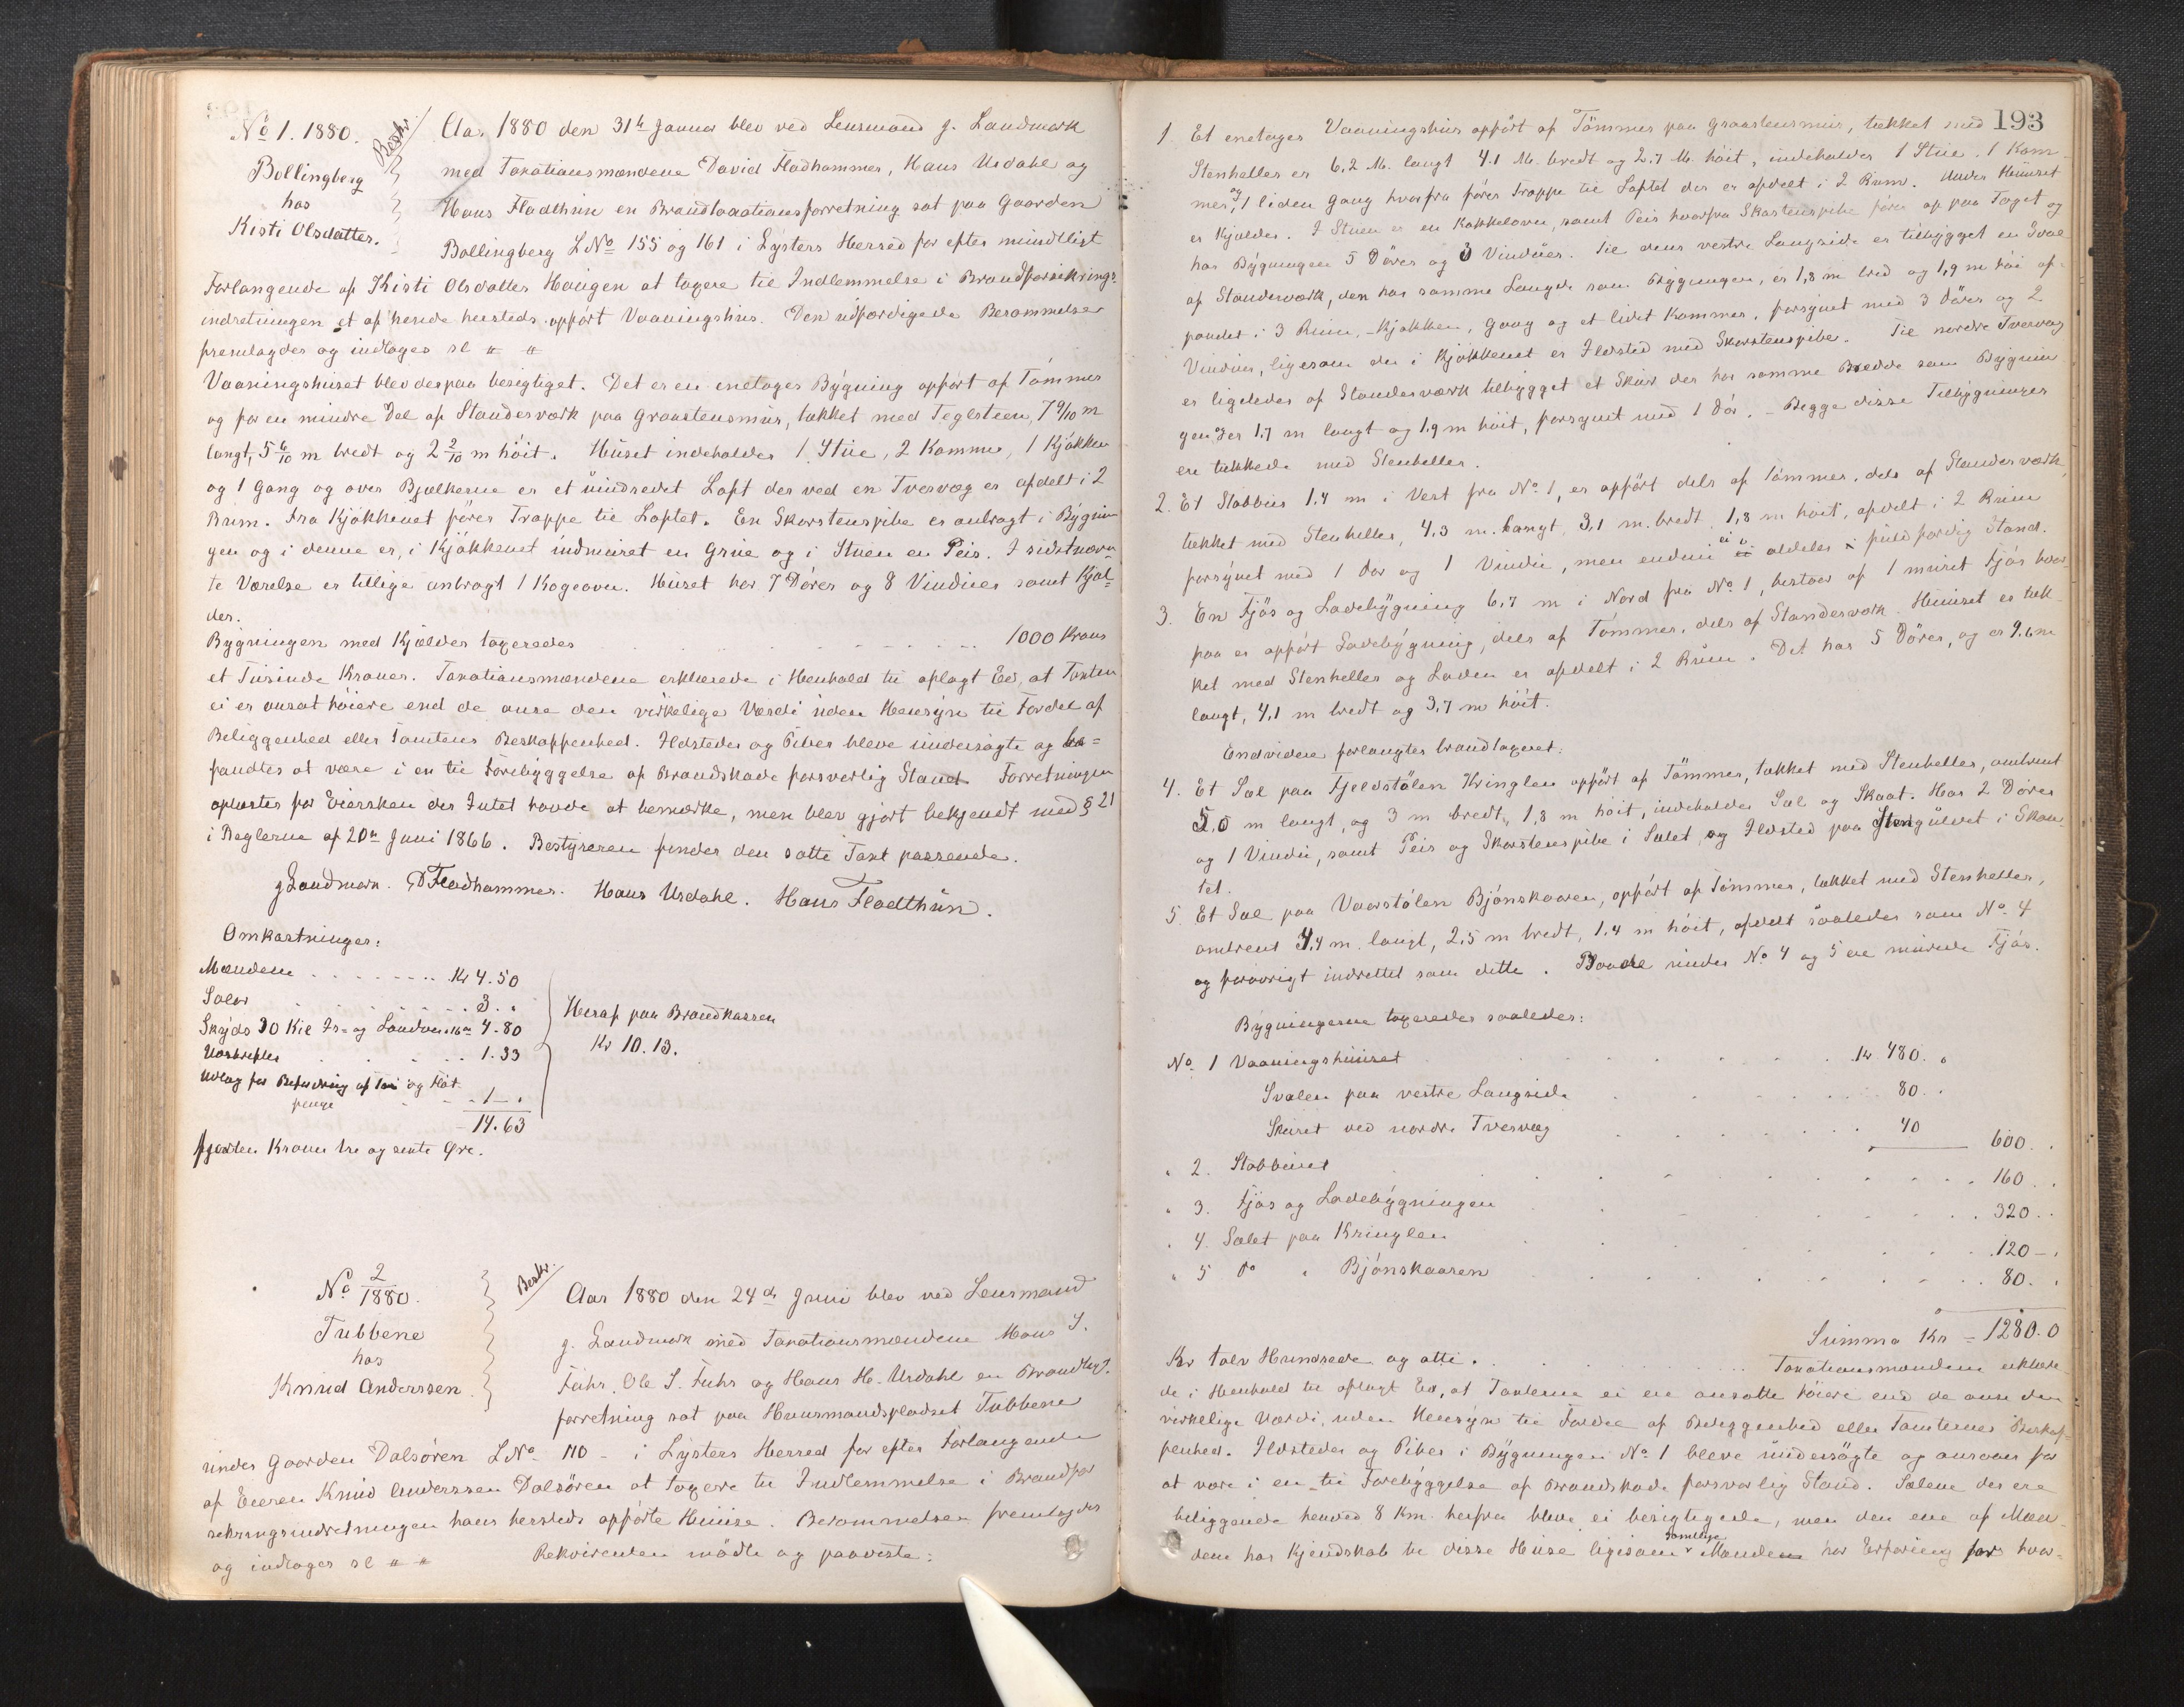 No 1. 1880.
Bollingberg
hos
Kisti Olsdatter.
Beskr.
Aar 1880 den 31te Januar blev ved Lensmand J. Landmark
med Taxationsmændene David Fladhammer, Hans Usdahl og
Hans Fladthun en Brandtaxationsforretning sat paa Gaarden
Bollingberg LNo 155 og 161 i Lysters Herred for efter mundtligt
Forlangende af Kisti Olsdatter Haugen at taxere til Indlemmelse i Brandforsikrings-
indretningen et af hende hersteds opført Vaaningshus. Den udfærdigede Berammelse
fremlagdes og indtages sl " "
Vaaningshuset blev derpaa besigtiget. Det er en enetages Bygning opført af Tømmer
og for en mindre Del af Standerværk paa Graastensmur, tækket med Teglsteen, 7 9/10 m
langt, 5 6/10 m bredt og 2 2/10 m høit. Huset indeholder 1 Stue, 2 Kammer, 1 Kjøkken
og 1 Gang og over Bjælkerne er et uindredet Loft der ved en Tvervæg er afdelt i 2
Rum. Fra Kjøkkenet fører Trappe til Loftet. En Skorstenspibe er anbragt i Bygnin
gen og i denne er, i Kjøkkenet indmuret en Grue og i Stuen en Peis. I sidstnævn
te Værelse er tillige anbragt 1 Kogeovn. Huset har 7 Døres og 8 Vinduer samt Kjæl-
der.
Bygningen med Kjælder taxeredes 1000 Kroner
et Tusinde Kroner. Taxationsmændene erklærede i Henhold til aflagt Ed, at Taxten
ei er ansat høiere end de anse den virkelige Værdi uden Hensyn til Fordel af
Beliggenhed eller Tomtens Beskaffenhed. Ildsteder og Piber bleve undersøgte og be=
fandtes at være i en til Forebyggelse af Brandskade forsvarlig Stand. Forretningen
oplæstes for Eiersken der Intet havde at bemærke, men blev gjort bekjendt med § 21
i Reglerne af 20de Juni 1866. Bestyreren finder den satte Taxt passende.
J Landmark. D Fladhammer. Hans Usdahl. Hans Fladthun.
Omkostninger:
Mændene Kr 4.50
Salær 3. "
Skyds 30 Kil Fr= og Landvei 16 Ør 4.80
Udskrifter 1.33
Udlag for Befordring af Tax og Flot
penge 1 - "
14.63
fjorten Kroner tre og sexti Øre.
Heraf paa Brandkassen
Kr 10.13.
No 2/1880.
Tubbene
hos
Knud Anderssen
Beskr.
Aar 1880 den 24de Juni blev ved Lensmand
J. Landmark med Taxationsmændene Mons S.
Fuhr, Ole S. Fuhr og Hans H. Usdahl en Brandtaxt.
forretning sat paa Husmandspladset Tubbene
under Gaarden Dalsøren LNo 110 - i Lysters Herred for efter Forlangende
af Eieren Knud Anderssen Dalsøren at taxere til Indlemmelse i Brandfor
sikringsindretningen hans hersteds opførte Huuse. Berammelsen fremlagdes
og indtages sl " " Rekvirenten mødte og paaviste:
193
1. Et enetages Vaaningshus opført af Tømmer paa Graastensmur, tækket med
Stenheller er 6,2 M. langt 4.1 M. bredt og 2,7 M. høit, indeholder 1 Stue, 1 Kam-
mer, og 1 liden Gang hvorfra fører Trappe til Loftet der er afdelt i 2 Rum. Under Huuset
er Kjelder. I Stuen er en Kakkelovn, samt Peis hvorfra Skorstenspibe fører op paa Taget og
har Bygningen 5 Døres og 3 Vinduer. Til dens vestre Langside er tilbygget en Sval
af Standerværk, den har samme Længde som Bygningen, er 1,8 m bred og 1,9 m høi af-
pandet i 3 Rum, - Kjøkken, Gang og et lidet Kammer, forsynet med 3 Døres og 2
Vinduer, ligesom der i Kjøkkenet er Ildsted med Skorstenspibe. Til nordre Tvervæg
er ligeledes af Standerværk tilbygget et Skur der har samme Bredde som Bygnin
gen, er 1,7 m langt og 1,9 m høit, forsynet med 1 Dør. - Begge disse Tilbygninger
ere tækkede med Stenheller.
2. Et Stabbur 1.4 m i Vest fra No 1, er opført dels af Tømmer, dels af Standerværk,
tækket med Stenheller, 4,3 m. langt, 3,1 m. bredt, 1,8 m høit, afdelt i 2 Rum
forsynet med 1 Dør og 1 Vindu, men endnu ei aldeles i fuldfærdig Stand.
3. En Fjøs og Ladebygning 6,7 m i Nord fra No 1, bestaar af 1 muret Fjøs hvor-
paa er opført Ladebygning, dels af Tømmer, dels af Standerværk. Huuset er tæk-
ket med Stenheller og Laden er afdelt i 2 Rum. Det har 5 Døres, og er 9.6 m
langt, 4,1 m bredt og 3,7 m høit.
Endvidere forlangtes brandtaxeret:
4. Et Sæl paa Fjeldstølen Kringlen opført af Tømmer, tækket med Stenheller, omtrent
5,0 m langt, og 3 m bredt, 1,8 m høit, indeholder Sæl og Skaat. Har 2 Døres
og 1 Vindu, samt Peis og Skorstenspibe i Sælet, og Ildsted paa Stengulvet i Skaa-
tet.
5. Et Sæl paa Vaarstølen Bjønskaaren, opført af Tømmer, tækket med Stenheller,
omtrent 4,4 m. langt, 2,5 m bredt, 1,4 m høit, afdelt saaledes som No 4
og forøvrigt indrettet som dette. Baade under No 4 og 5 ere murede Fjøs.
Bygningerne taxeredes saaledes:
No 1 Vaaningshuuset Kr 480. "
Svalen paa vestre Langside 80. "
Skuret ved nordre Tvervæg 40 600. "
" 2. Stabburet 160. "
" 3. Fjøs og Ladebygningen 320. "
" 4. Sælet paa Kringlen 120 - "
" 5 Do " Bjønskaaren 80. "
Summa Kr = 1280.0
Kr tolv Hundrede og otti. Taxationsmændene erklære-
de i Henhold til aflagt Ed, at Taxterne ei ere ansatte høiere end de anse den
virkelige Værdi, uden Hensyn til Fordel af Beliggenhed eller Tomternes Beskaf-
fenhed. Ildsteder og Piber i Bygningen No 1 bleve undersøgte og ansaaes for
at være i en til Forebyggelse af Brandskade forsvarlig Stand. Sælene der ere
beliggende henved 8 Km. herfra bleve ei besigtigede, men den ene af Mæn-
dene har Kjendskab til disse Huse ligesom samtlige Mændene har Erfaring for hvor-